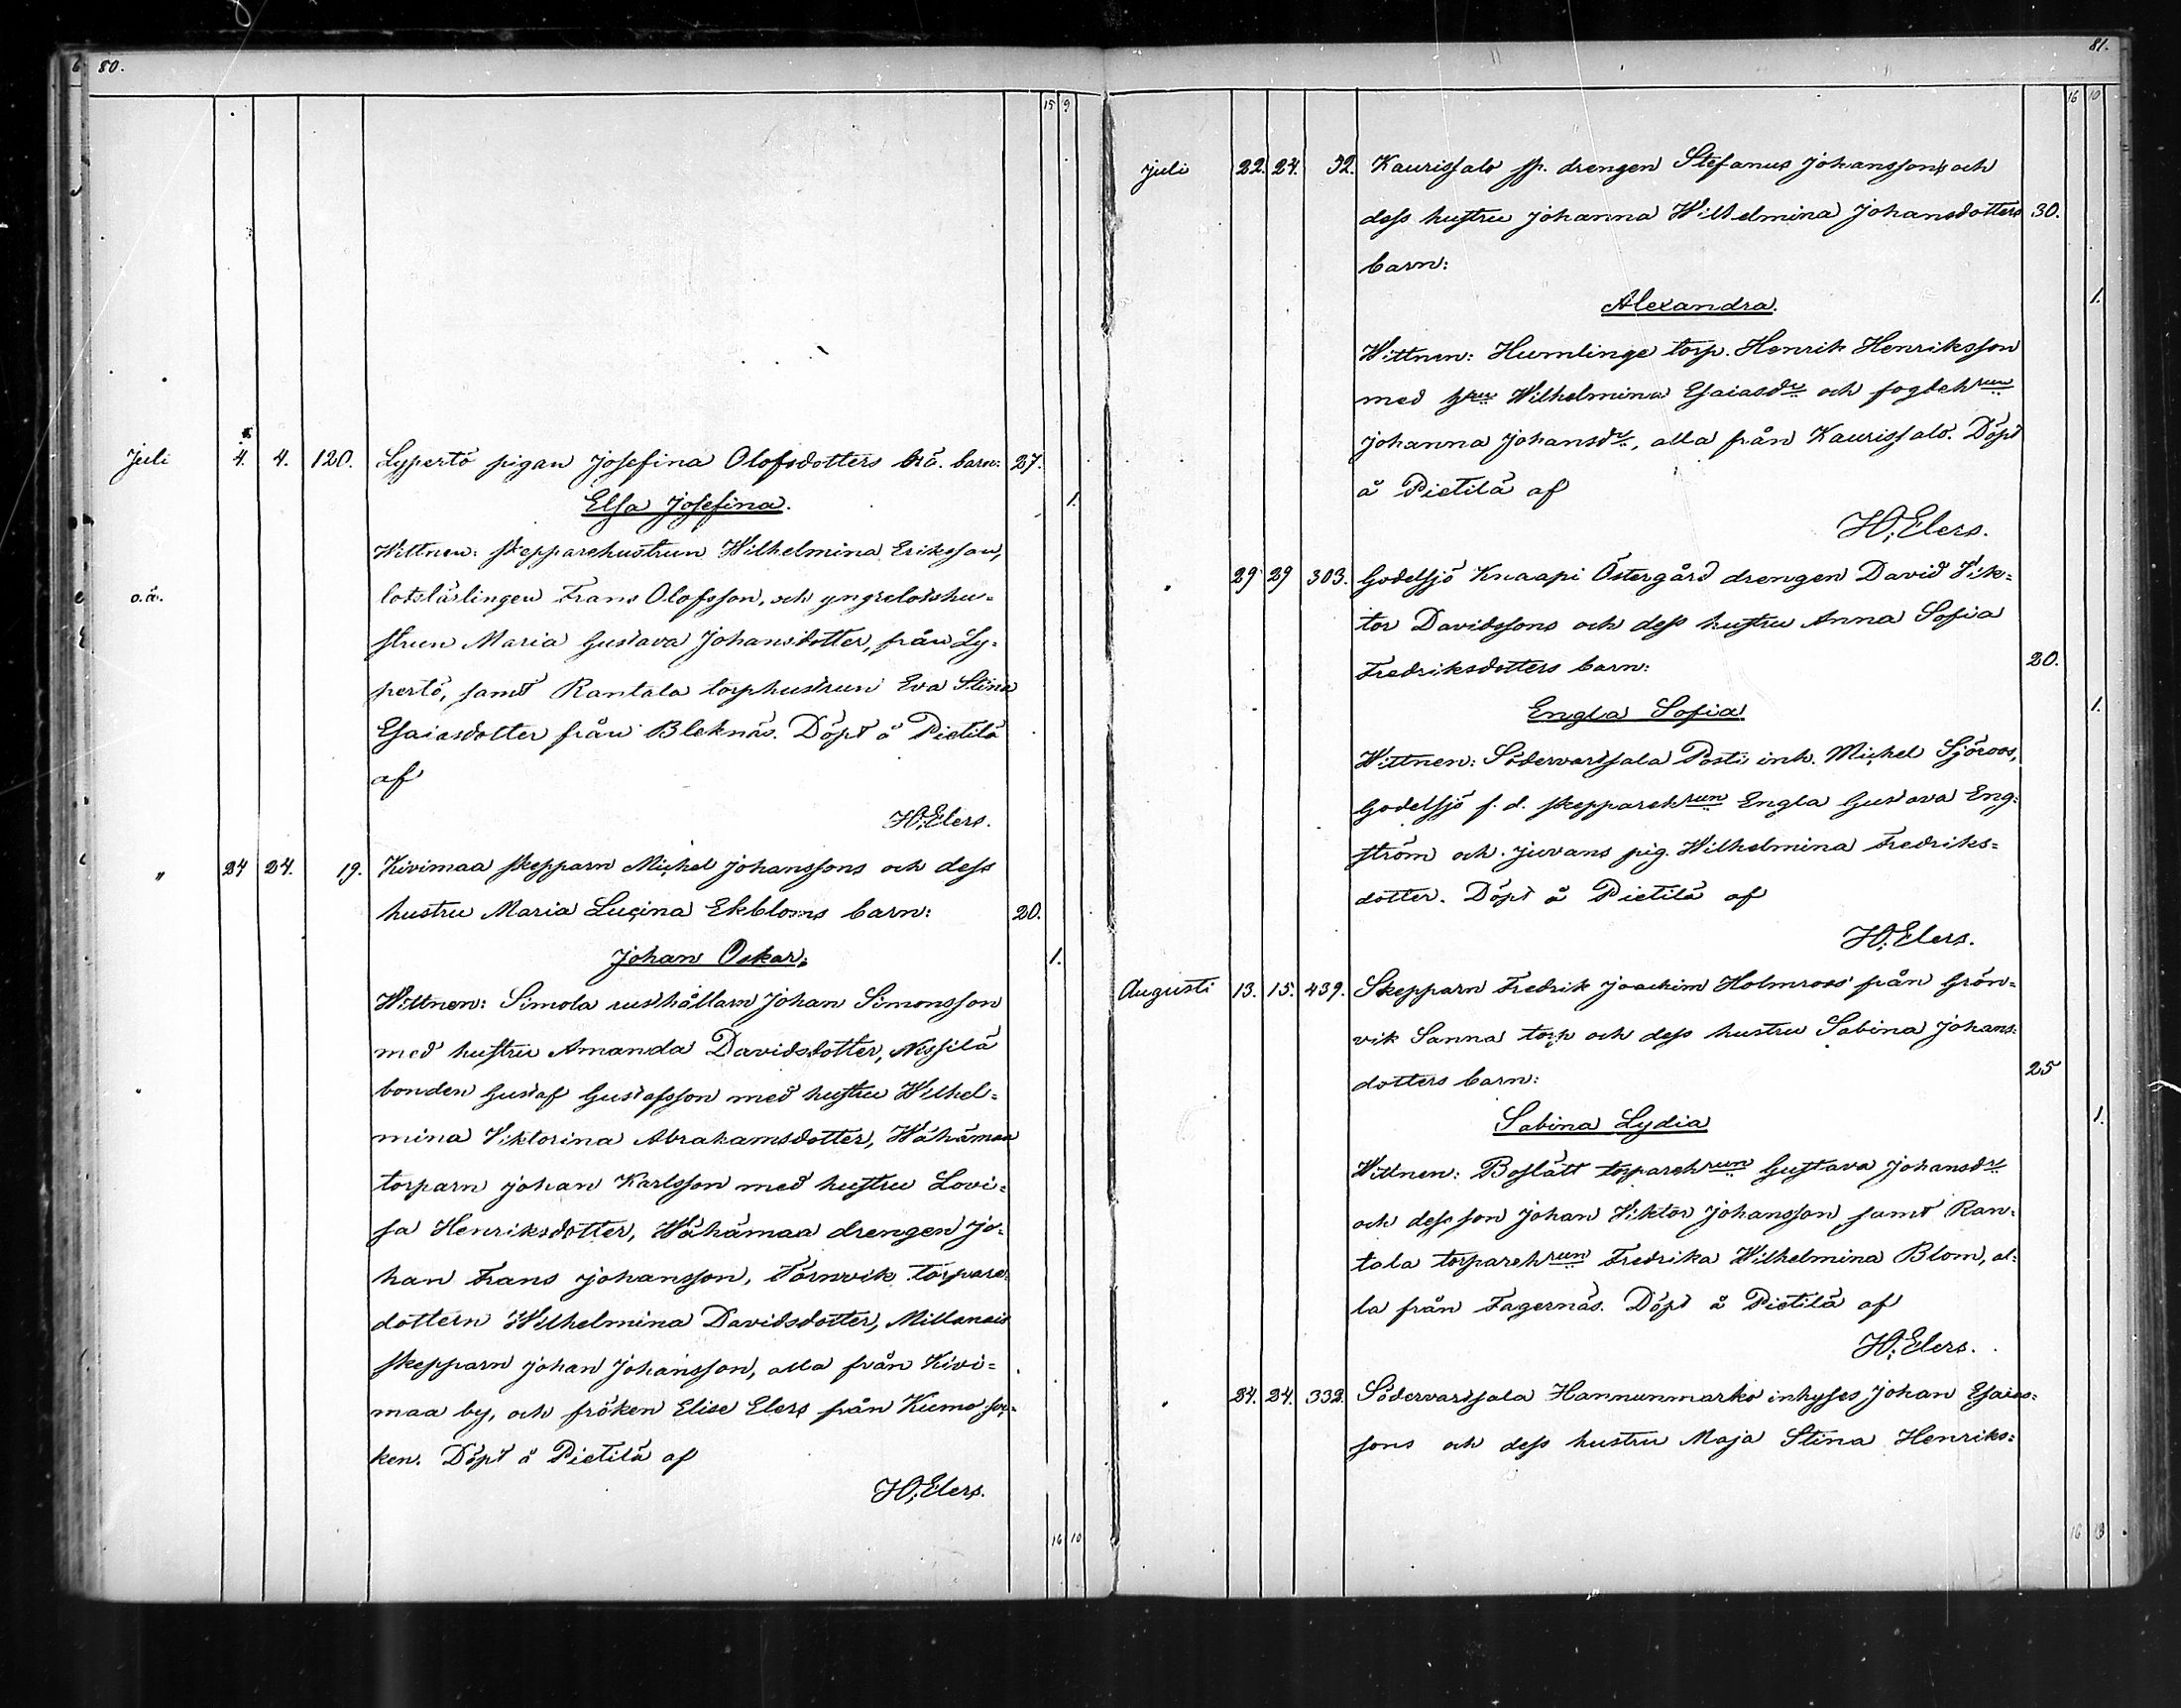 80.
15 9
Juli 4. 4. 120. Lypertö pigan Josefina Olofsdotters oä. barn: 27.
Elsa Josefina. 1.
Wittnen: skepparehustrun Wilhelmina Eriksson,
o.ä. lotslärlingen Frans Olofsson, och yngrelotshu-
strun Maria Gustava Johansdotter, från Ly-
pertö, samt Rantala torphustrun Eva Stina
Esaiasdotter från Bleknäs. Döpt å Pietilä
af
H. Elers.
„ 24 24. 19. Kivimaa skepparn Michel Johanssons och dess
hustru Maria Lucina Ekbloms barn: 20.
Johan Oskar; 1.
Wittnen: Simola rusthållarn Johan Simonsson
med hustru Amanda Davidsdotter, Nissilä
bonden Gustaf Gustafsson med hustru Wilhel-
mina Viktorina Abrahamsdotter, Wähämaa
torparn Johan Karlsson med hustru Lovi-
sa Henriksdotter, Wähämaa drengen Jo-
han Frans Johansson, Törnvik torpare-
dottern Wilhelmina Davidsdotter,
skepparn Johan Johansson, alla från Kivi-
maa by, och fröken Elise Elers från Kumo soc-
ken. Döpt å Pietilä af
H. Elers.
16 10
81.
16 10
Juli 22. 24. 32. Kaurissalo sp. drengen Stefanus Johanssons och
dess hustru Johanna Wilhelmina Johansdotters 30.
barn:
Alexandra. 1.
Wittnen: Humlinge torp. Henrik Henriksson
med hru Wilhelmina Esaiasdr och fogdehrun
Johanna Johansdr, alla från Kaurissalo. Döpt
å Pietilä af
H. Elers.
„ 29 29 303. Godelsjö Knaapi Östergård drengen David Vik-
tor Davidssons och dess hustru Anna Sofia
Fredriksdotters barn: 20.
Engla Sofia 1.
Wittnen: Södervartsala Posti inh. Michel Sjöroos,
Godelsjö f. d. skepparehrun Engla Gustava Eng-
ström och Juvans pig. Wilhelmina Fredriks-
dotter. Döpt å Pietilä af
H. Elers.
Augusti 13. 15. 439. Skepparn Fredrik Joachim Holmroos från Grön-
vik Sanna torp och dess hustru Sabina Johans-
dotters barn: 25
Sabina Lydia 1.
Wittnen: Boslätt torparehrun Gustava Johansdr
och dess son Johan Viktor Johansson samt Ran-
tala torparehrun Fredrika Wilhelmina Blom, al-
la från Fagernäs. Döpt å Pietilä af
H. Elers.
„ 24. 24. 332. Södervartsala Hannunmarks inhyses Johan Esaias-
sons och dess hustru Maja Stina Henriks-
16